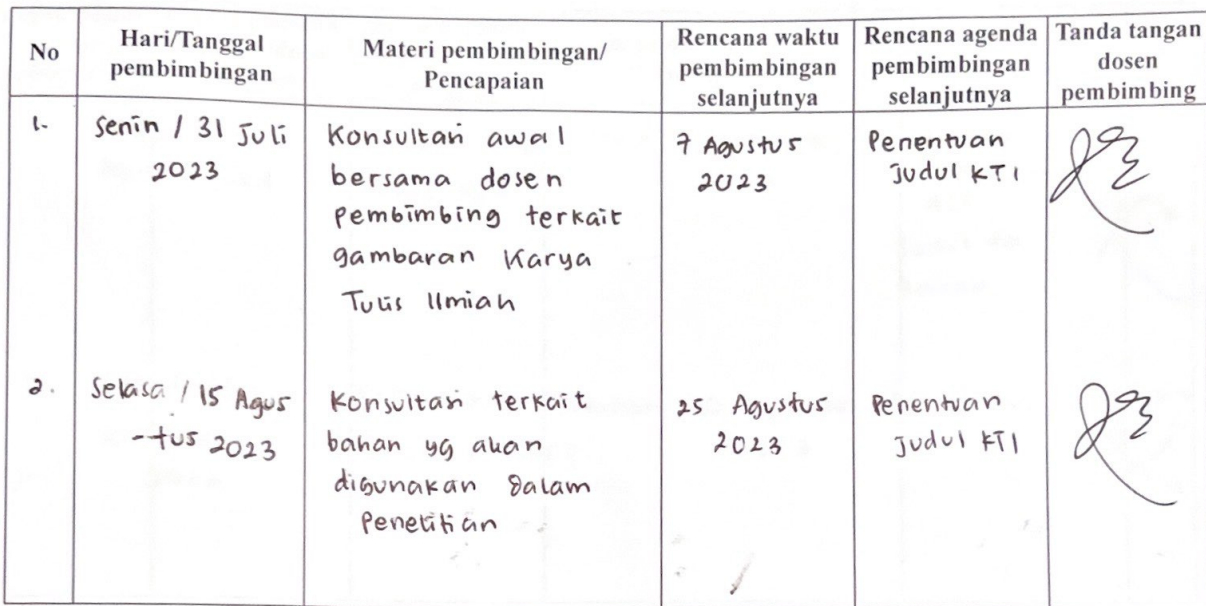 No
Hari/Tanggal
pembimbingan
Materi pembimbingan/
Pencapaian
Rencana waktu
pembimbingan
selanjutnya
Rencana agenda
pembimbingan
selanjutnya
Tanda tangan
dosen
pembimbing
1.
Senin / 31 Juli
2023
Konsultasi awal
bersama dosen
Pembimbing terkait
gambaran Karya
Tulis Ilmiah
7 Agustus
2023
Penentuan
Judul KTI
2.
Selasa / 15 Agus
-tus 2023
Konsultasi terkait
bahan yg akan
digunakan dalam
Penelitian
25 Agustus
2023
Penentuan
Judul KTI